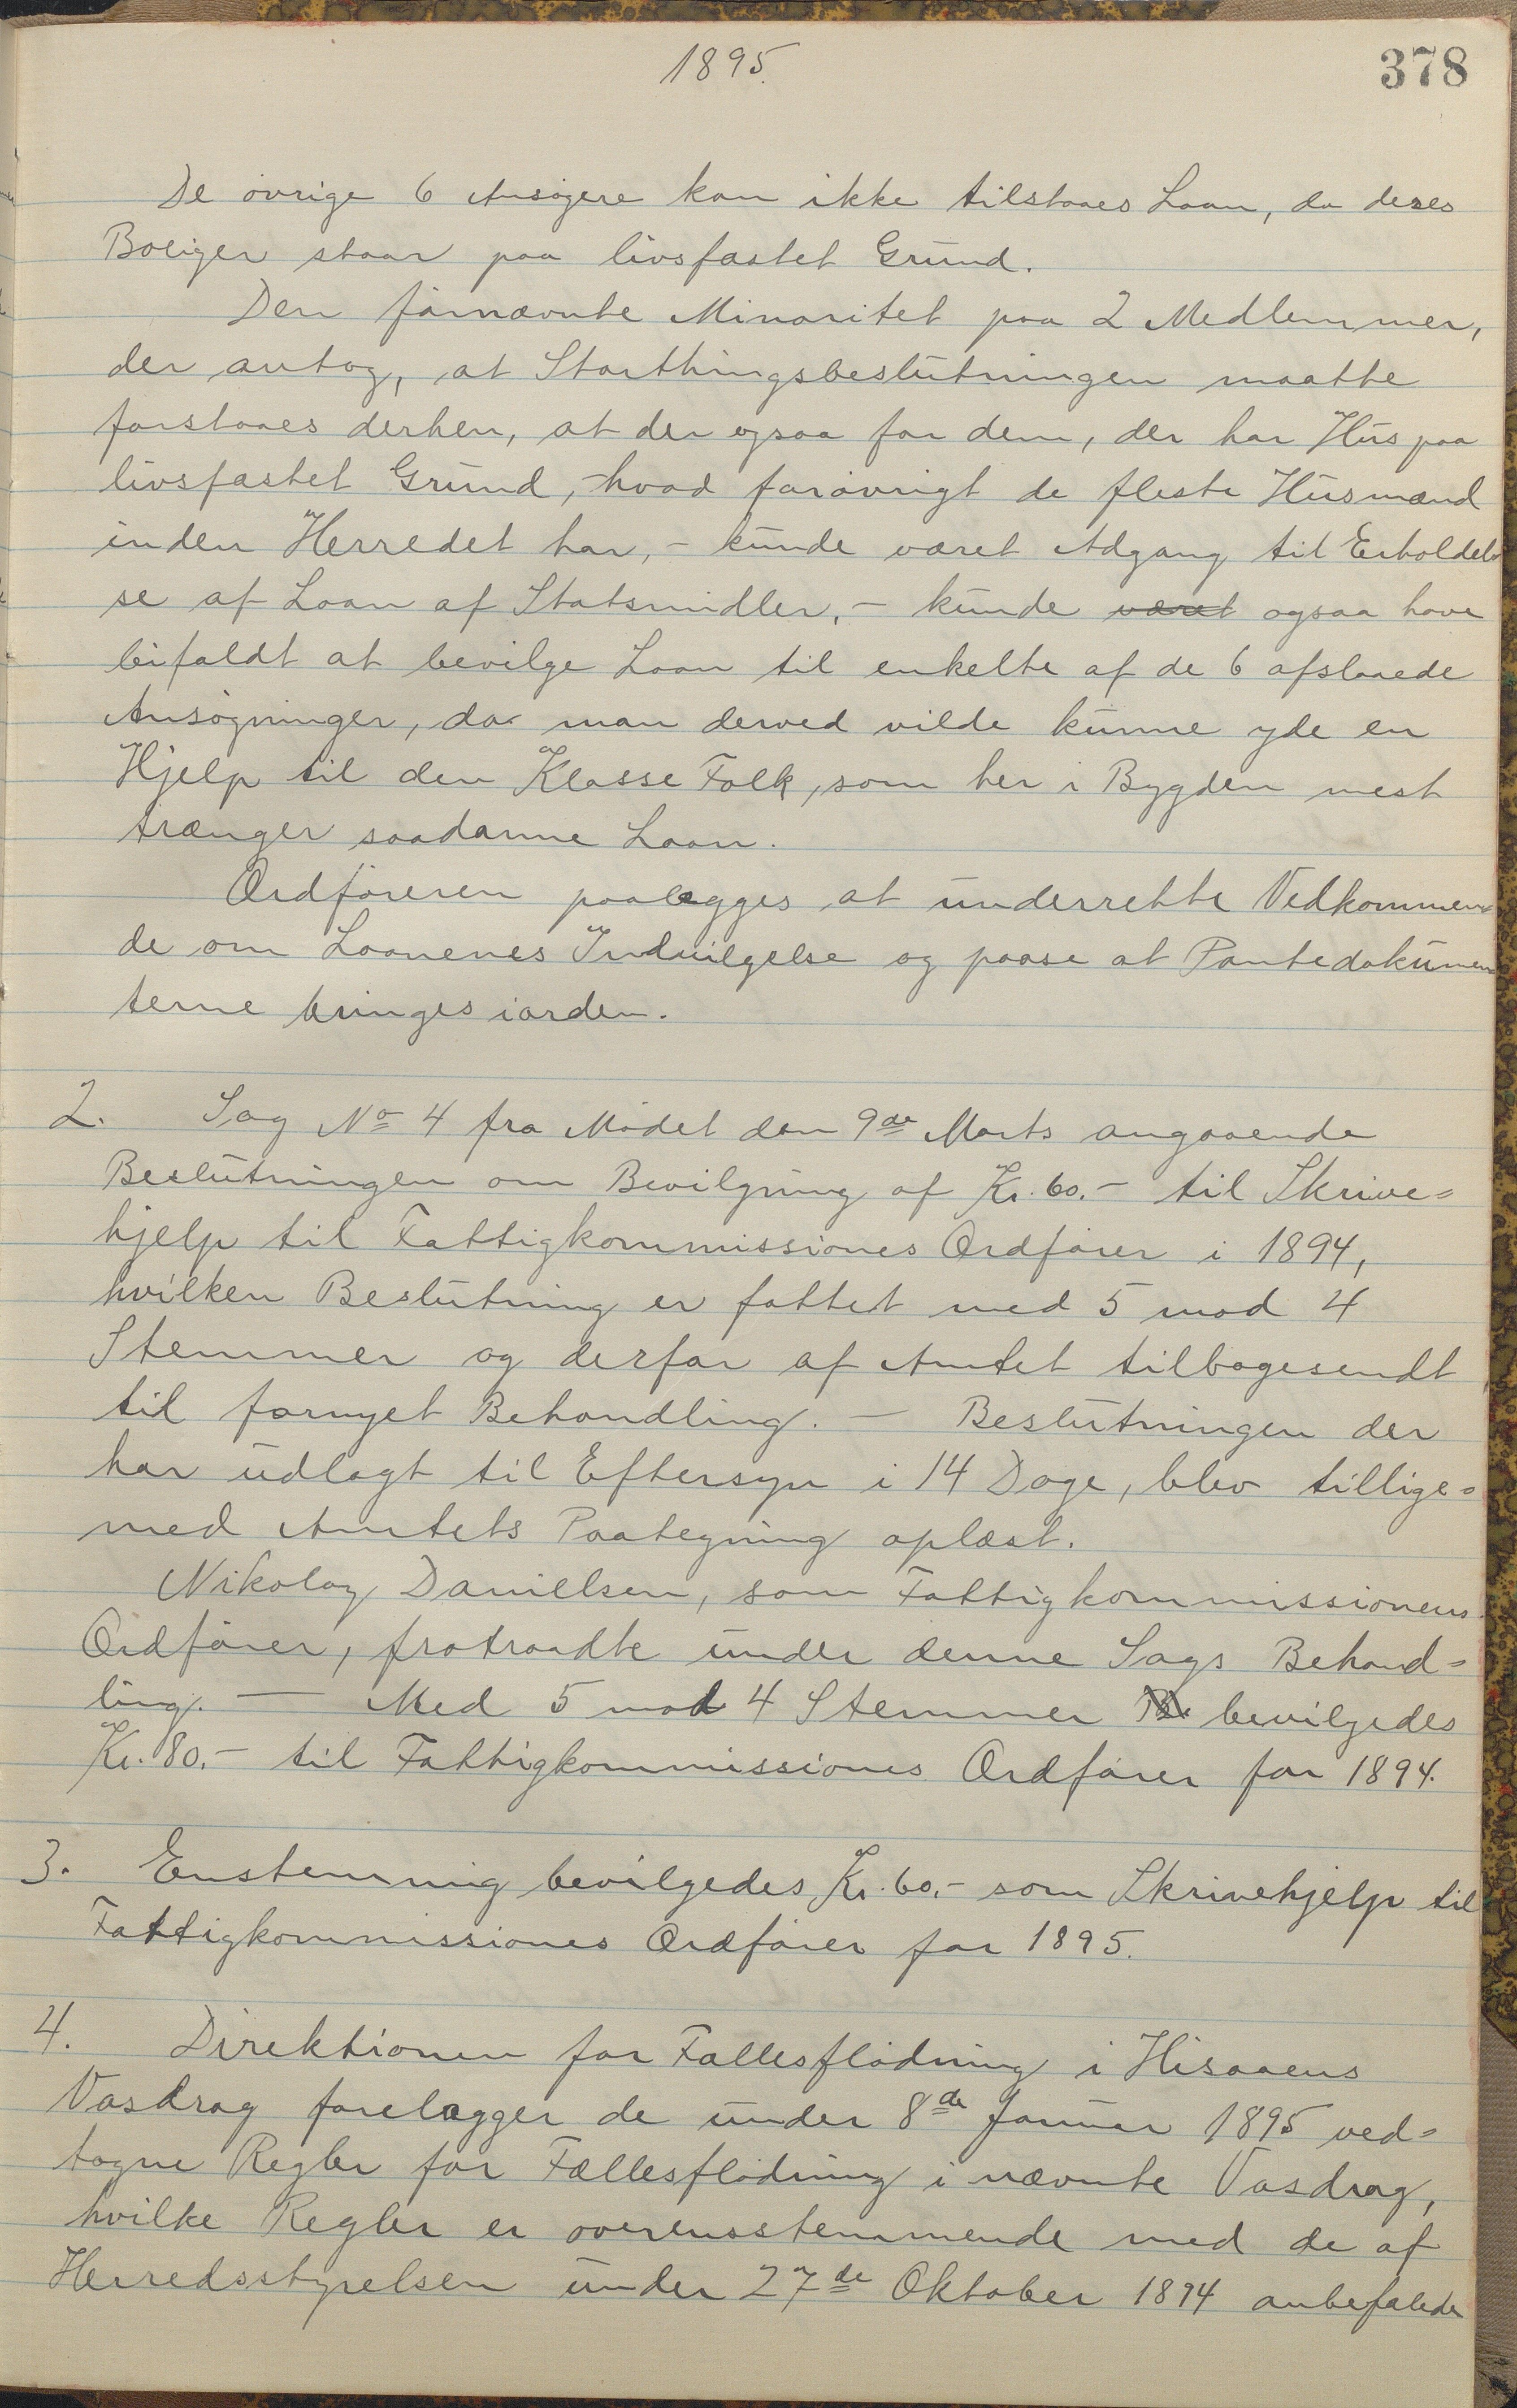 1895.
378
De øvrige 6 Ansøgere kan ikke tilstaaes Laan, da deres
Boliger staar paa livsfæstet Grund.
Den førnævnte Minoritet paa 2 Medlemmer,
der antog, at Storthingsbeslutningen maatte
forstaaes derhen, at der ogsaa for dem, der har Hus paa
livsfæstet Grund, - hvad forøvrigt de fleste Husmænd
inden Herredet har, - kunde været Adgang til Erholdel-
se af Laan af Statsmidler, - kunde været ogsaa have
bifaldt at bevilge Laan til enkelte af de 6 afslaaede
Ansøgninger, da man derved vilde kunne yde en
Hjelp til den Klasse Folk, som her i Bygden mest
trænger saadanne Laan.
Ordføreren paalægges at underrette Vedkommen-
de om Laanenes Indvilgelse og paase at Pantedokumen
terne bringes iorden.
2. Sag No 4 fra Mødet den 9de Marts angaaende
Beslutningen om Bevilgning af Kr. 60.- til Skrive=
hjelp til Fattigkommissiones Ordfører i 1894,
hvilken Beslutning er fattet med 5 mod 4
Stemmer og derfor af Amtet tilbagesendt
til fornyet Behandling. — Beslutningen der
har udlagt til Eftersyn i 14 Dage, blev tillige=
med Amtets Paategning oplæst.
Nikolay Danielsen, som Fattigkommissionens
Ordfører, fratraadte under denne Sags Behand=
ling. — Med 5 mod 4 Stemmer Be bevilgedes
Kr. 80.- til Fattigkommissiones Ordfører for 1894.
3. Enstemmig bevilgedes Kr. 60.- som Skrivehjelp til
Fattigkommissiones Ordfører for 1895.
4. Direktionen for Fællesflødning i Hisaaens
Vasdrag forelægger de under 8de Januar 1895 ved=
tagne Regler for Fællesflødning i nævnte Vasdrag,
hvilke Regler er overensstemmende med de af
Herredsstyrelsen under 27de Oktober 1894 anbefalede